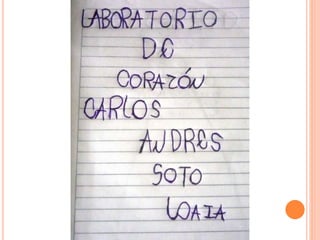 LABORATORIO
DE
CORAZÓN
CARLOS
ANDRES
SOTO
LOAIA